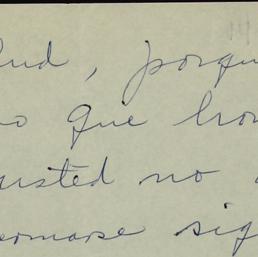 Ud, porqu
o que hon
usted no
tomarse sig